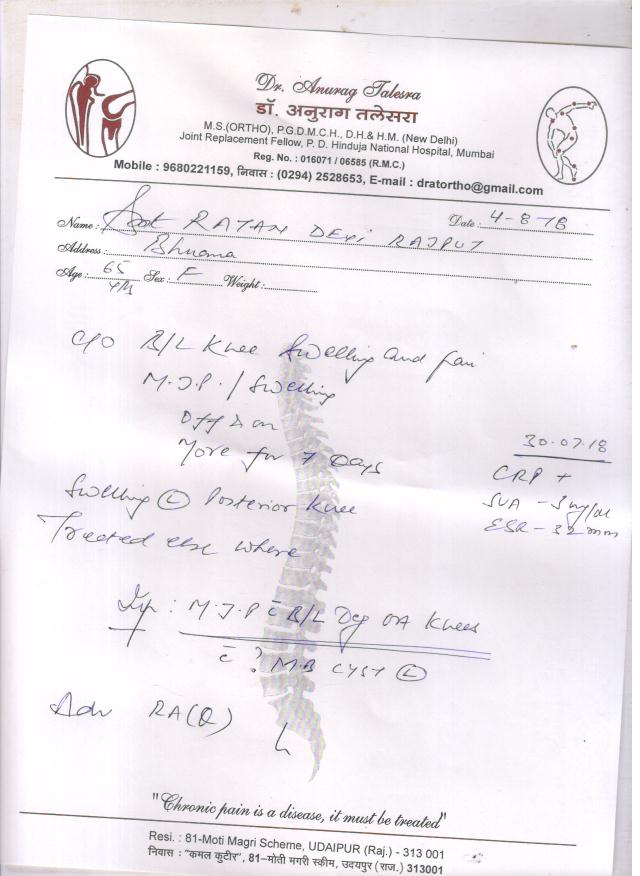 Dr. Anurag Talesra
डॉ. अनुराग तलेसरा
M.S.(ORTHO), P.G.D.M.C.H., D.H.& H.M. (New Delhi)
Joint Replacement Fellow, P. D. Hinduja National Hospital, Mumbai
Reg. No. : 016071 / 06585 (R.M.C.)
Mobile : 9680221159, निवास : (0294) 2528653, E-mail : dratortho@gmail.com
Name : RATAN DEVI RAJPUT
Date : 4-8-18
Address :
Age : 65 Sex : F Weight :
C/O B/L Knee Swelling and Pain
M.J.P. / Swelling
Off & on
More for 7 Days
30-07-18
CRP +
SUA - 3 mg/dl
ESR - 32 mm
Swelling Ⓛ Posterior Knee
Treated else where
Imp : M.J.P c̄ B/L Deg OA Knees
c̄ ? M.B CYST Ⓛ
Adv RA(Q)
"Chronic pain is a disease, it must be treated"
Resi. : 81-Moti Magri Scheme, UDAIPUR (Raj.) - 313 001
निवास : "कमल कुटीर", 81–मोती मगरी स्कीम, उदयपुर (राज.) 313001